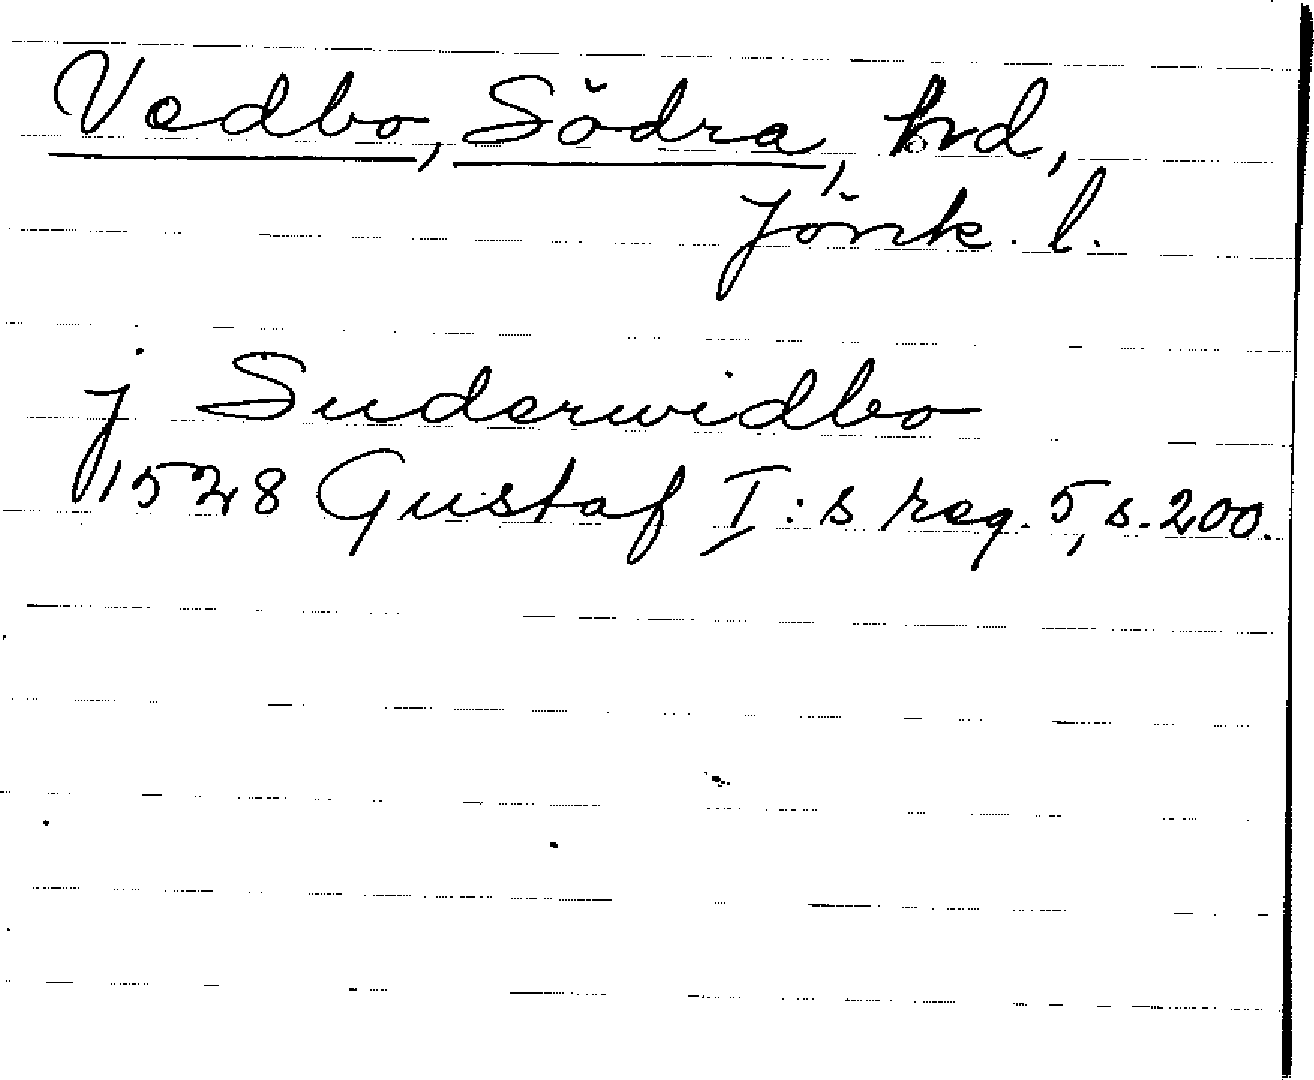 Vedbo, Södra, hrd,
Jönk. l.
j Suderwidbo
1528 Gustaf I:s reg. 5, s. 200.